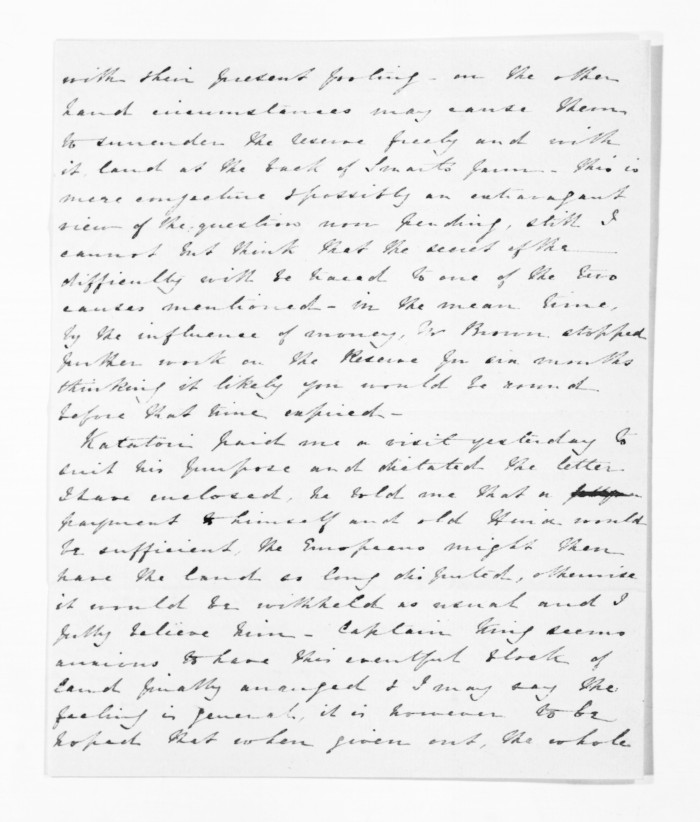 with their present feeling - on the other
hand circumstances may cause them
to surrender the reserve freely and with
it land at the back of Smarts farm - This is
mere conjecture & possibly an extravagant
view of the question now pending, still I
cannot but think that the secret of the
difficulty will be traced to one of the two
causes mentioned - in the mean time,
by the influence of money, Dr Brown stopped
further work on the Reserve for six months
thinking it likely you would be round
before that time expired -
Katatori paid me a visit yesterday to
suit his purpose and dictated the letter
I have enclosed, he told me that a
payment to himself and old would
be sufficient, the Europeans might then
have the land so long disputed, otherwise
it would be withheld as usual and I
fully believe him - Captain King seems
anxious to have this eventful block of
land finally arranged & I may say the
feeling is general, it is however to be
hoped that when given out, the whole